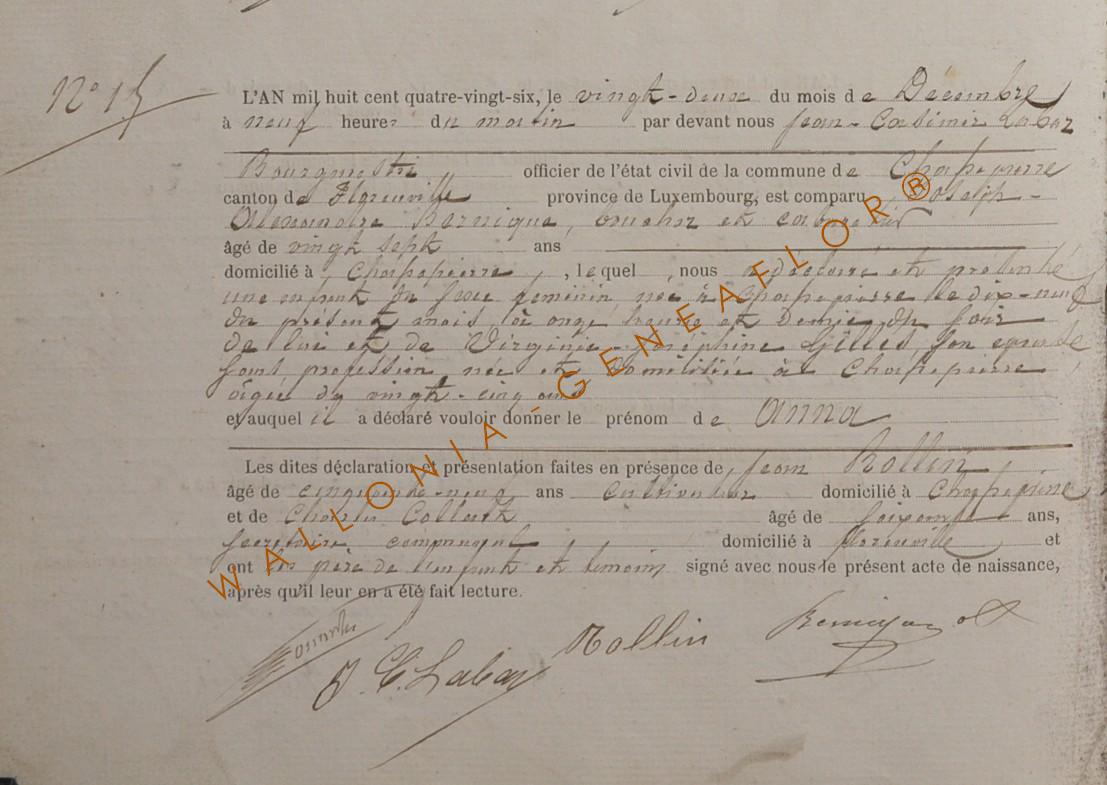 N° 15
L'AN mil huit cent quatre-vingt-six, le vingt-deux du mois de Décembre
à neuf heures du matin par devant nous Jean-Casimir Labaz
Bourgmestre officier de l'état civil de la commune de Chassepierre
canton de Florenville province de Luxembourg, est comparu Joseph-
Alexandre Bernique, boucher et cabaretier
âgé de vingt sept ans
domicilié à Chassepierre, lequel nous a déclaré et présenté
une enfant du sexe féminin, née à Chassepierre le dix-neuf
du présent mois à onze heures et demie du soir
de lui et de Virginie-Joséphine Gilles, son épouse
sans profession, née et domiciliée à Chassepierre
âgée de vingt-cinq ans
et auquel il a déclaré vouloir donner le prénom de Anna
Les dites déclaration et présentation faites en présence de Jean Rollin
âgé de cinquante-neuf ans cultivateur domicilié à Chassepierre
et de Charles âgé de soixante ans,
secrétaire communal domicilié à Florenville et
ont les père de l'enfant et témoins signé avec nous le présent acte de naissance,
après qu'il leur en a été fait lecture.
J. C. Labaz Rollin
WALLONIA_GENEAFLOR®